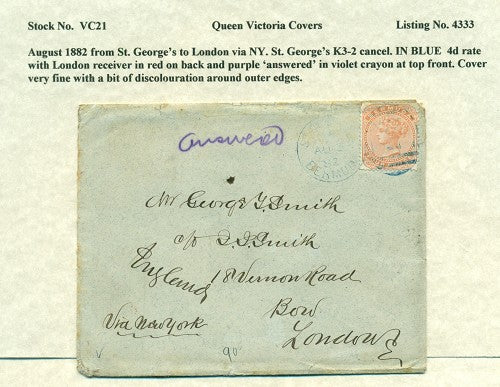 Stock No. VC21 Queen Victoria Covers Listing No. 4333
August 1882 from St. George's to London via NY. St. George's K3-2 cancel. IN BLUE 4d rate
with London receiver in red on back and purple 'answered' in violet crayon at top front. Cover
very fine with a bit of discolouration around outer edges.
answered
Mr George T. Smith
c/o I. I. Smith
England 18 Vernon Road
Bow
Via New York
London E
v 90